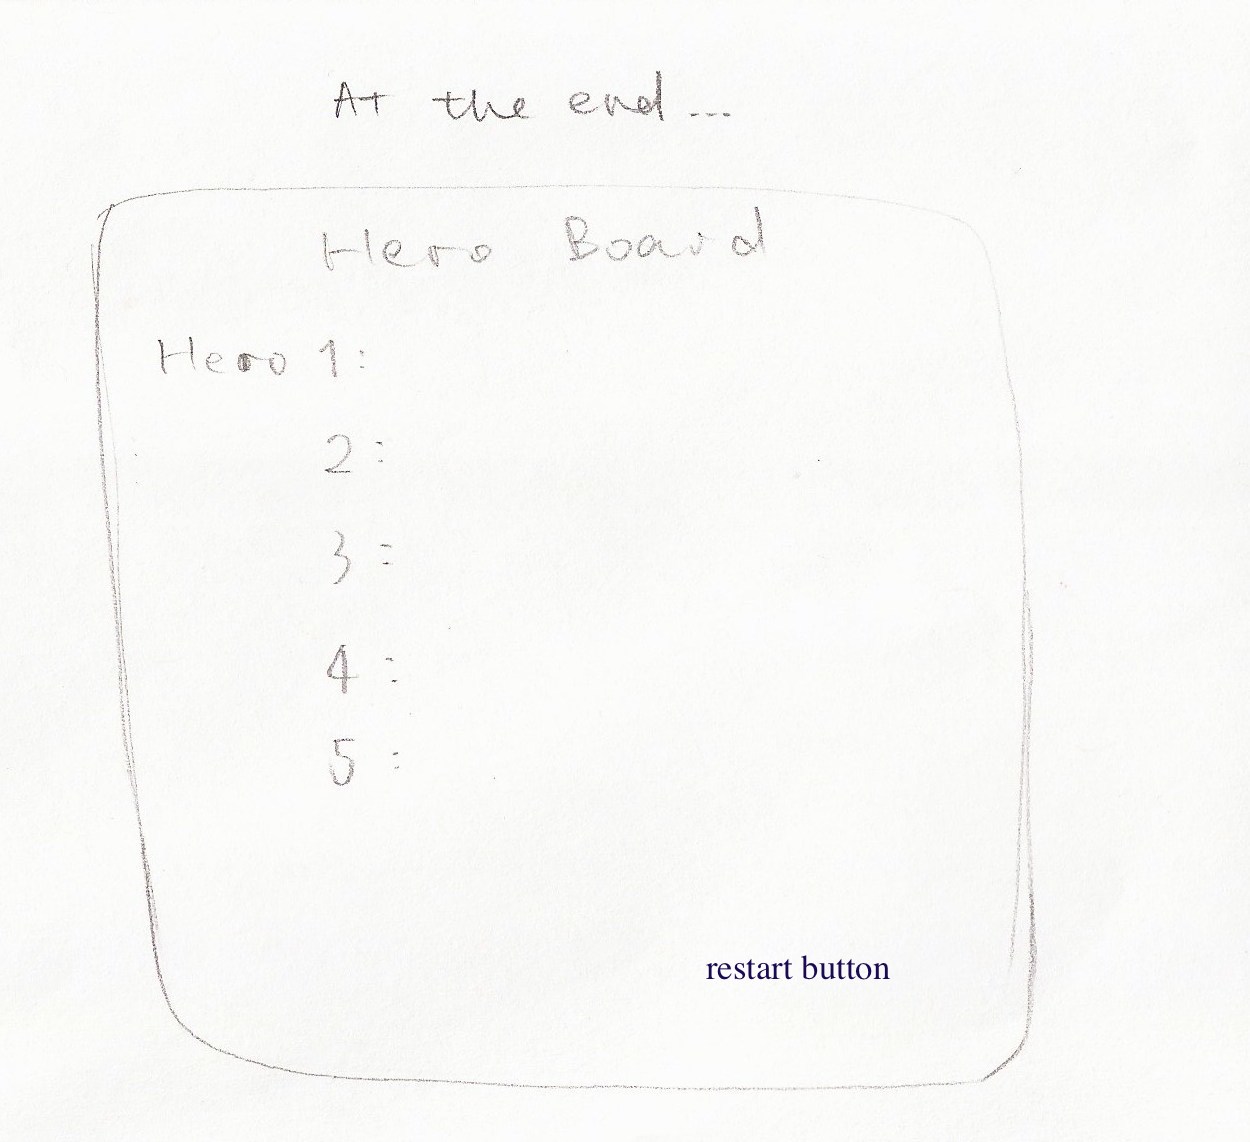 At the end...
Hero Board
Hero 1:
2:
3:
4:
5:
restart button